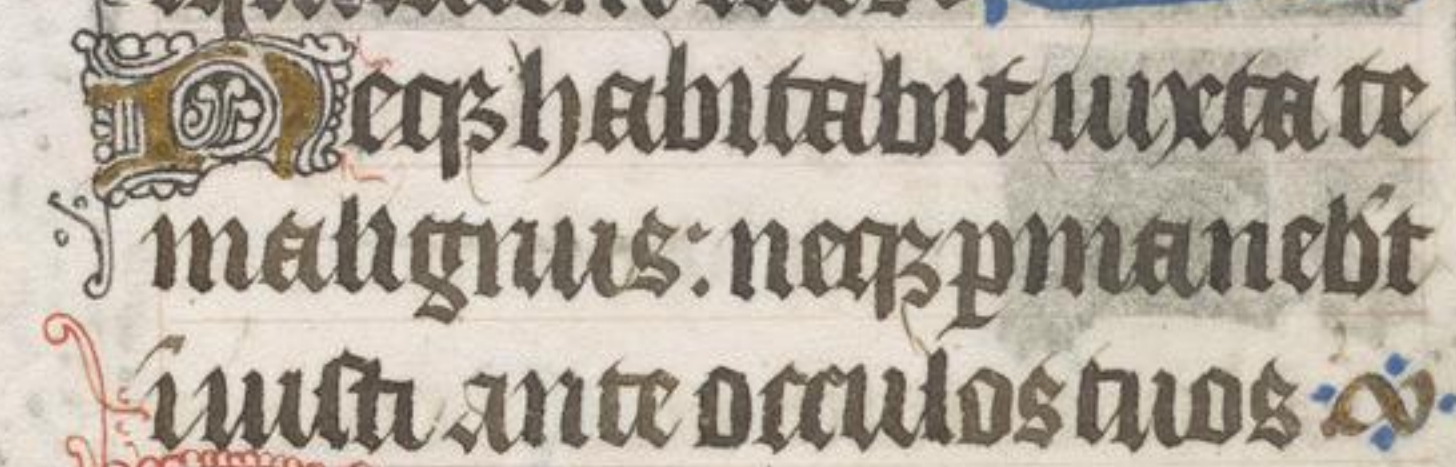 Neqꝫ habitabit iuxta te
malignus: neqꝫ ꝑmanebt̄
iniusti ante occulos tuos